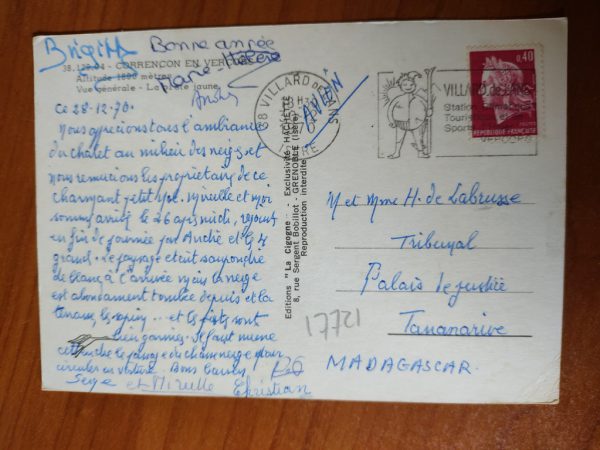 Brigitte Bonne année
Marie-Hélène
38.128.04 - CORRENCON EN VER
Altitude 1890 mètres
Vue générale - Le jaune
André
Ce 28-12-70.
Nous apprécions tous l'ambiance
du chalet au milieu des neiges et
nous remercions les propriétaires de ce
charmant petit Mireille et moi
sommes arrivés le 26 après midi, rejoints
en fin de journée par André et les 4
grands. Le paysage était saupoudré
de blanc à l'arrivée mais la neige
est abondamment tombée depuis et la
terrasse, les sapins ... et les sont
bien garnies. Il faut même
cette pour
circuler en voiture. Bons baisers
Serge et Mireille Christian
Editions "La Cigogne" - Exclusivité HACHETTE
8, rue Sergent Bobillot - GRENOBLE (Isère)
Reproduction interdite
VILLARD DE LANS
ISERE
PAR AVION
VILLARD DE LANS
Station
Sport
0,40
REPUBLIQUE FRANÇAISE
M et Mme H. de Labrusse
Tribunal
Palais de justice
Tananarive
MADAGASCAR.
17721